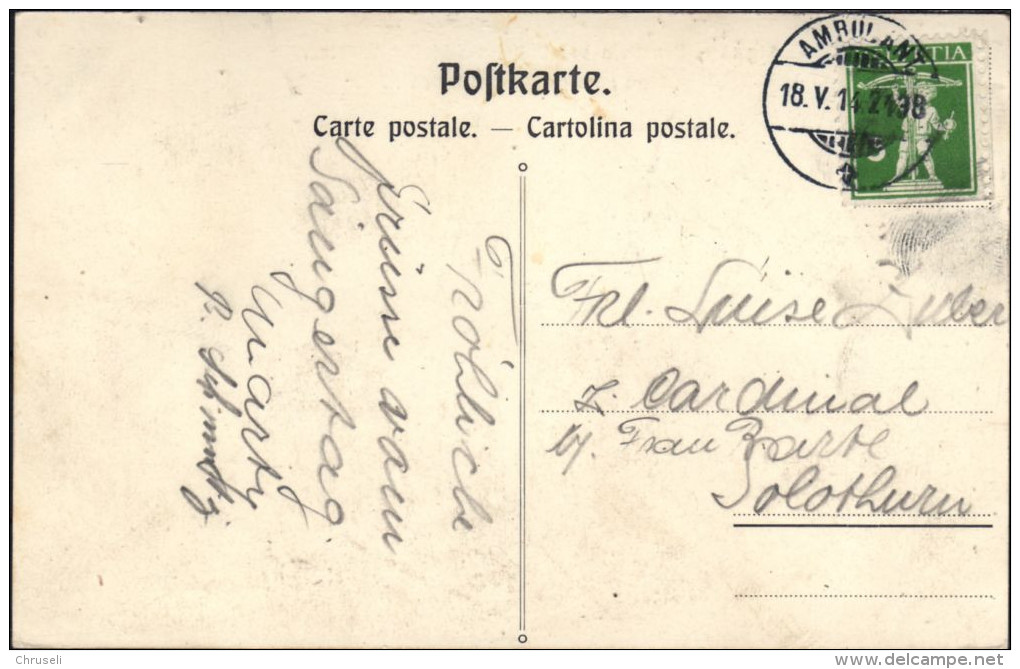 Postkarte.
Carte postale. — Cartolina postale.
AMBULANT
18.V.14.2198
HELVETIA
Fröhliche
Grüsse vom
Sängertag
Marty
Frl. Luise Zuber
z. Cardinal
by Frau Barte
Solothurn
Chruseli
www.delcampe.net